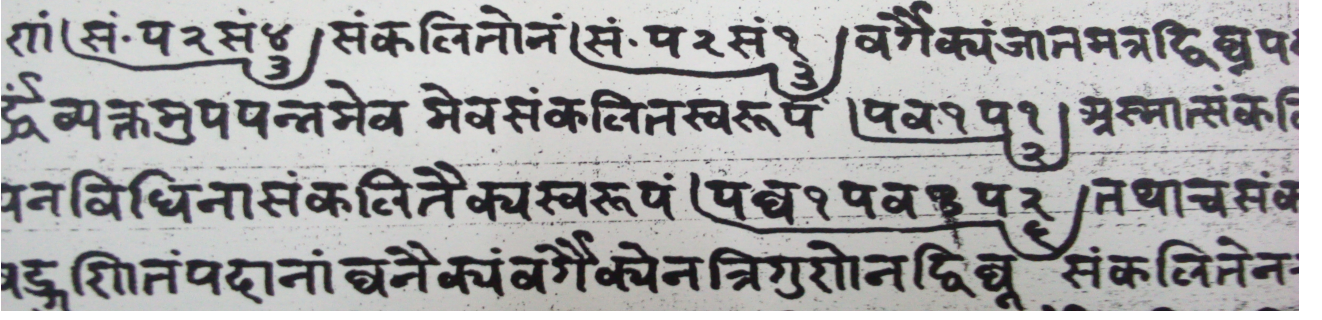 णं (सं॰ प २ सं ४ / ३) संकलितोनं (सं॰ प २ सं १ / ३) वर्गैक्यं जातमत्र द्विघ्नप
व्यक्तमुपपन्नमेव मेव संकलितस्वरूपं (प व १ प १ / २) अस्मात्संकलि
पनविधिना संकलितैक्यस्वरूपं (प घ १ प व ३ प २ / ६) तथा च संक
गुणितं पदानां घनैक्यं वर्गैक्येन त्रिगुणेन द्विघ्न संकलितेन